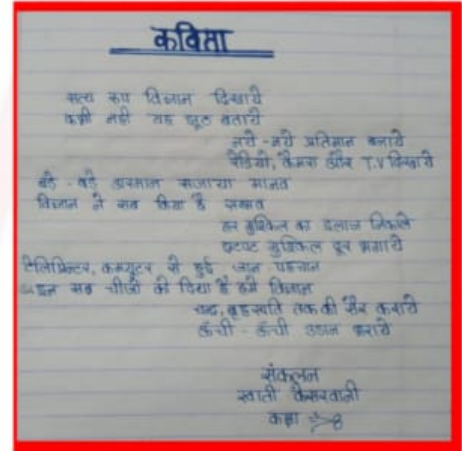 कविता
सत्य रूप विज्ञान दिखाये
कभी नही यह झूठ बताये
नये-नये प्रतिमान बनाये
रेडियो, कैमरा और T.V दिखाये
बड़े-बड़े अरमान सजाया मानव
विज्ञान ने सब किया है सम्भव
हर मुश्किल का इलाज निकाले
झटपट मुश्किल दूर भगाये
टेलिप्रिन्टर, कम्प्यूटर से हुई जान-पहचान
इन सब चीजो को दिया है हमे विज्ञान
चन्द्र, बृहस्पति तक की सैर कराये
ऊँची-ऊँची उडान कराये
संकलन
स्वाती केसरवानी
कक्षा 8